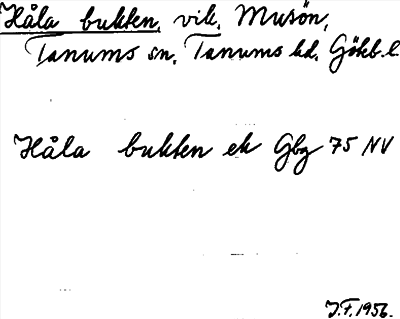 Håla bukten, vik, Musön,
Tanums sn, Tanums hd, Götb. l.
Håla bukten ek Gbg 75 NV
J.F. 1956.